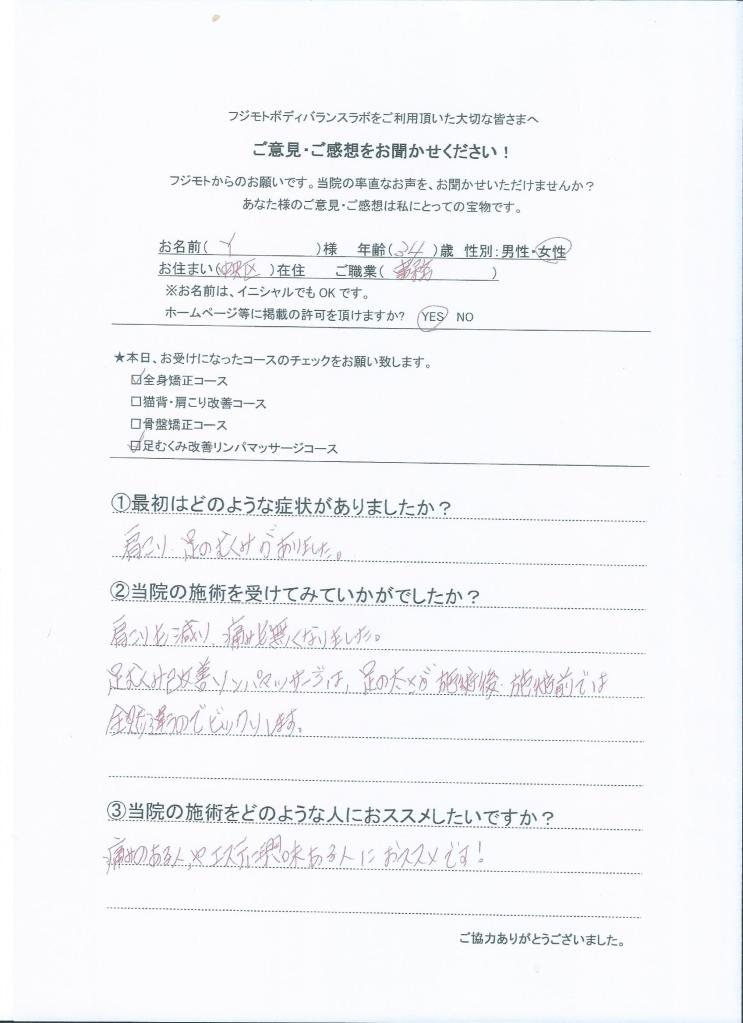 フジモトボディバランスラボをご利用頂いた大切な皆さまへ
ご意見・ご感想をお聞かせください！
フジモトからのお願いです。当院の率直なお声を、お聞かせいただけませんか？
あなた様のご意見・ご感想は私にとっての宝物です。
お名前( Y )様 年齢(34)歳 性別：男性・女性
お住まい(中央区)在住 ご職業(事務)
※お名前は、イニシャルでもOKです。
ホームページ等に掲載の許可を頂けますか? YES NO
★本日、お受けになったコースのチェックをお願い致します。
☑全身矯正コース
□猫背・肩こり改善コース
□骨盤矯正コース
☑足むくみ改善リンパマッサージコース
①最初はどのような症状がありましたか？
肩こり、足のむくみがありました。
②当院の施術を受けてみていかがでしたか？
肩こりも減り、痛みも無くなりました。
足むくみ改善リンパマッサージは、足の太さが施術後・施術前では
全然違うのでビックリします。
③当院の施術をどのような人におススメしたいですか？
痛みのある人や、エステに興味ある人におススメです！
ご協力ありがとうございました。